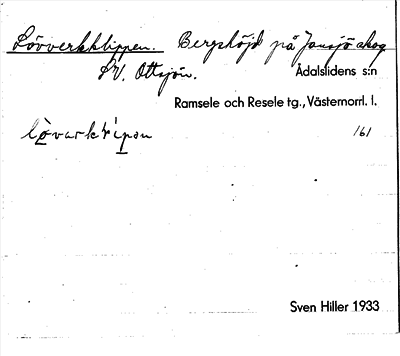 Lövverkklippen. Bergshöjd på Jansjö skog
SV. Ottsjön. Ådalslidens s:n
Ramsele och Resele tg., Västernorrl. l.
161
Sven Hiller 1933